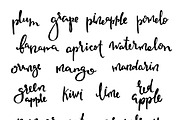 plum grape pineapple pomelo
banana apricot watermelon
orange mango mandarin
green apple kiwi lime red apple